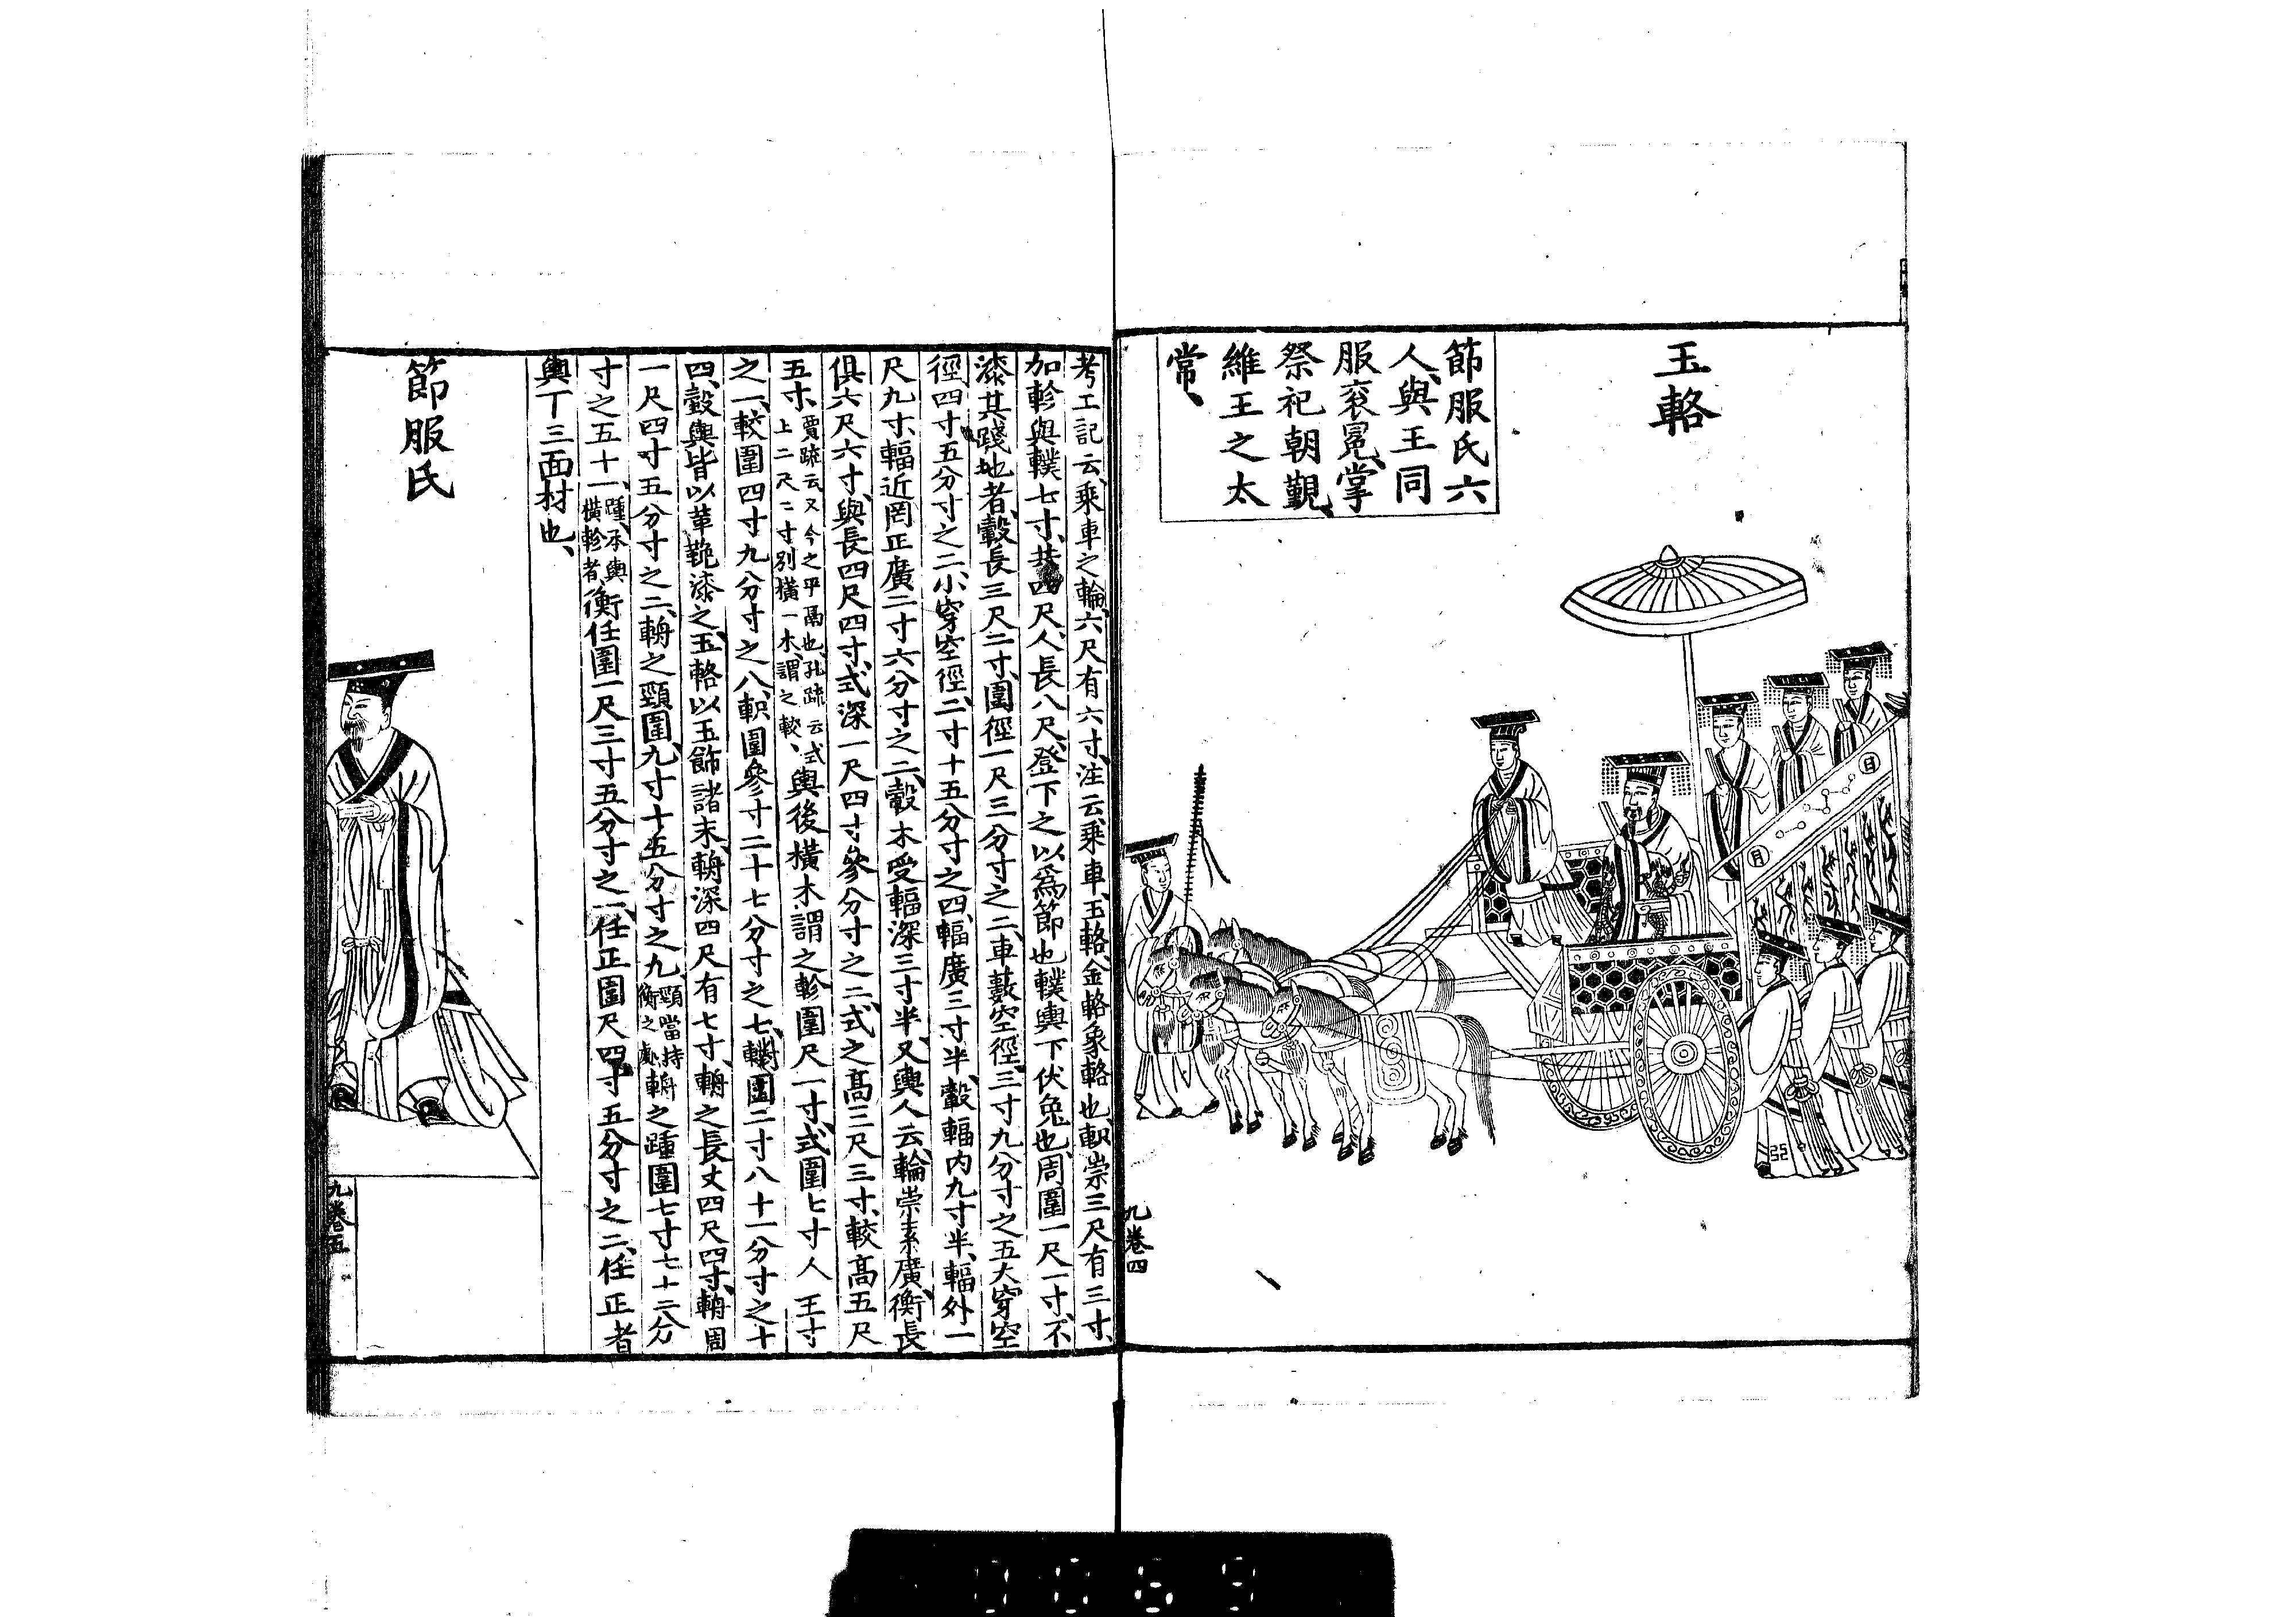 玉輅
節服氏六
人與王同
服衮冕掌
祭祀朝覲
維王之太
常
日
月
九卷四
考工記云乘車之輪六尺有六寸注云乘車玉輅金輅象輅也軹崇三尺有三寸
加軫與轐七寸共四尺人長八尺登下之以爲節也轐輿下伏兔也周圍一尺一寸不
漆其踐地者轂長三尺二寸圍徑一尺三分寸之二車藪空徑三寸九分寸之五大穿空
徑四寸五分寸之二小穿空徑二寸十五分寸之四輻廣三寸半轂輻内九寸半輻外一
尺九寸輻近罔正廣二寸六分寸之二轂木受輻深三寸半又輿人云輪崇素廣衡長
俱六尺六寸與長四尺四寸式深一尺四寸參分寸之二式之髙三尺三寸較髙五尺
五寸賈疏云又今之平鬲也孔疏云式
上二尺二寸别橫一木謂之較輿後橫木謂之軫圍尺一寸式圍七寸人王寸
之一較圍四寸九分寸之八軹圍參寸二十七分寸之七轛圍二寸八十一分寸之十
四轂輿皆以革鞔漆之玉輅以玉飾諸末輈深四尺有七寸輈之長丈四尺四寸輈周
一尺四寸五分寸之二輈之頸圍九寸十五分寸之九頸當持
衡之處輈之踵圍七寸七十二分
寸之五十一踵承輿
橫軫者衡任圍一尺三寸五分寸之一任正圍尺四寸五分寸之二任正者
輿丅三面材也
節服氏
九卷五
0069